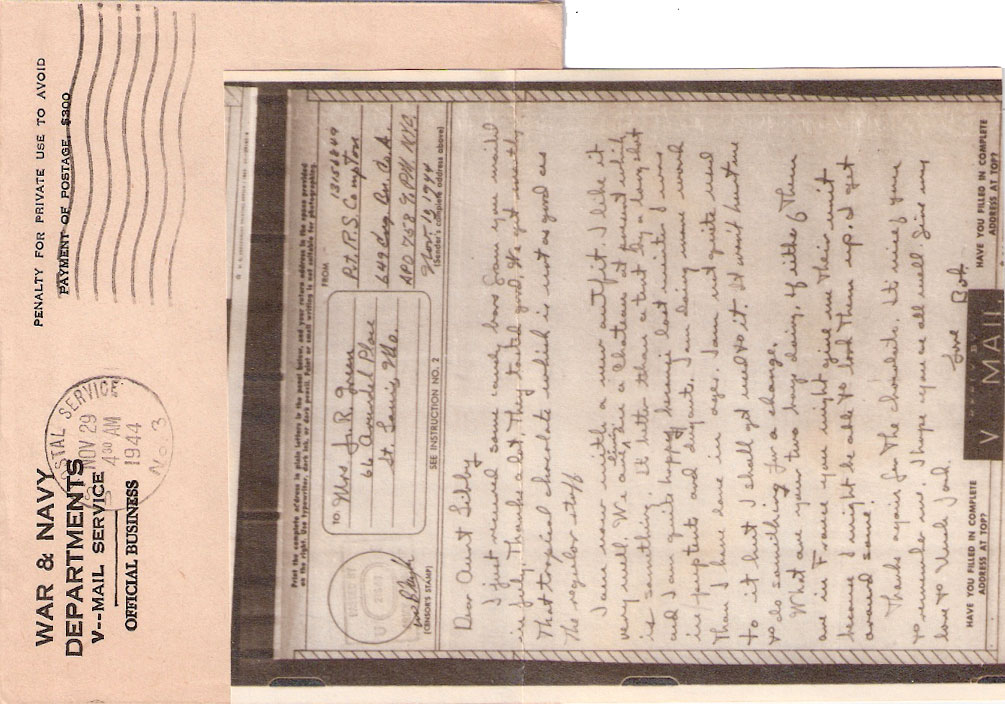 WAR & NAVY
DEPARTMENTS
V--MAIL SERVICE
OFFICIAL BUSINESS
POSTAL SERVICE
NOV 29
4 30 AM
1944
No. 3
PENALTY FOR PRIVATE USE TO AVOID
PAYMENT OF POSTAGE, $300
Print the complete address in plain letters in the panel below, and your return address in the space provided
on the right. Use typewriter, dark ink, or dark pencil. Faint or small writing is not suitable for photographing.
(CENSOR'S STAMP)
TO: Mrs. J. R. Green
66 Arundel Place
St. Louis, Mo.
SEE INSTRUCTION NO. 2
FROM
Pvt. R. S. Compton 13156849
649 Eng. Bn. Co. A.
APO 758 % PM NYC
Nov. 19 1944
(Sender's complete address above)
Dear Aunt Libby
I just received some candy bars from you mailed
in July. Thanks a lot. They tasted good. We get mostly
that tropical chocolate which is not as good as
the regular stuff
I am now with a new outfit. I like it
very well. We are living in a chateau at present which
is something. It better than a tent by a long shot
and I am quite happy being last minute I was
in / and I am doing more work
than I have in ages. I am not quite used
to it but I shall get used to it. It won't hurt me
to do something for a change.
What are your two boys doing, if either of them
are in France you might give me their unit
because I might be able to look them up. I get
around some.
Thanks again for the chocolate. Its nice of you
to remember me. I hope you are all well. Give my
love to Uncle Jack.
Love
Bob
HAVE YOU FILLED IN COMPLETE
ADDRESS AT TOP?
V MAIL
HAVE YOU FILLED IN COMPLETE
ADDRESS AT TOP?